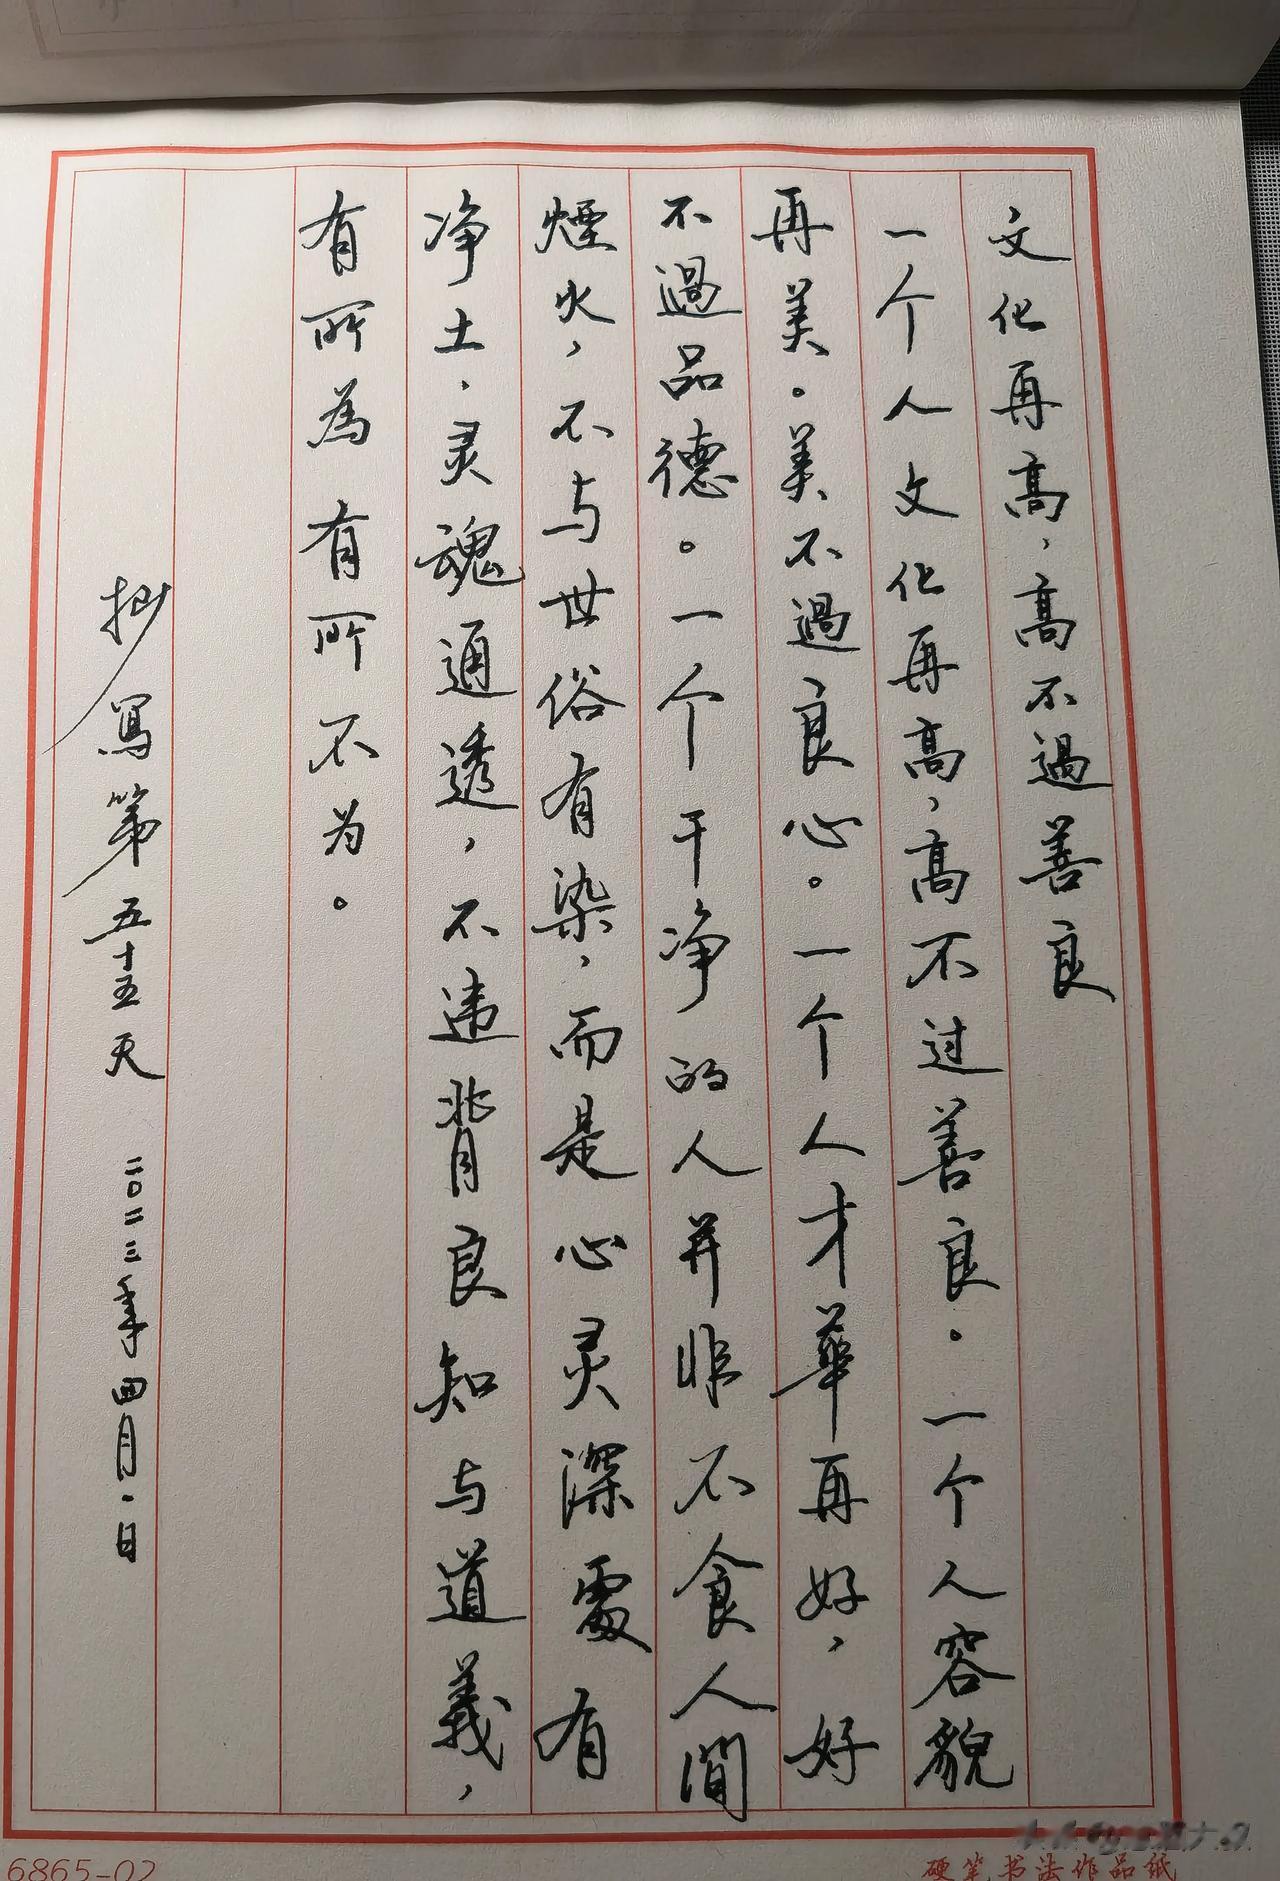 文化再高，高不過善良
一个人文化再高，高不过善良。一个人容貌
再美。美不過良心。一个人才華再好，好
不過品德。一个干净的人并非不食人間
煙火，不与世俗有染，而是心灵深處有
净土，灵魂通透，不违背良知与道義，
有所為有所不为。
抄寫第五十五天 二〇二三年四月一日
6865-02
硬笔书法作品纸